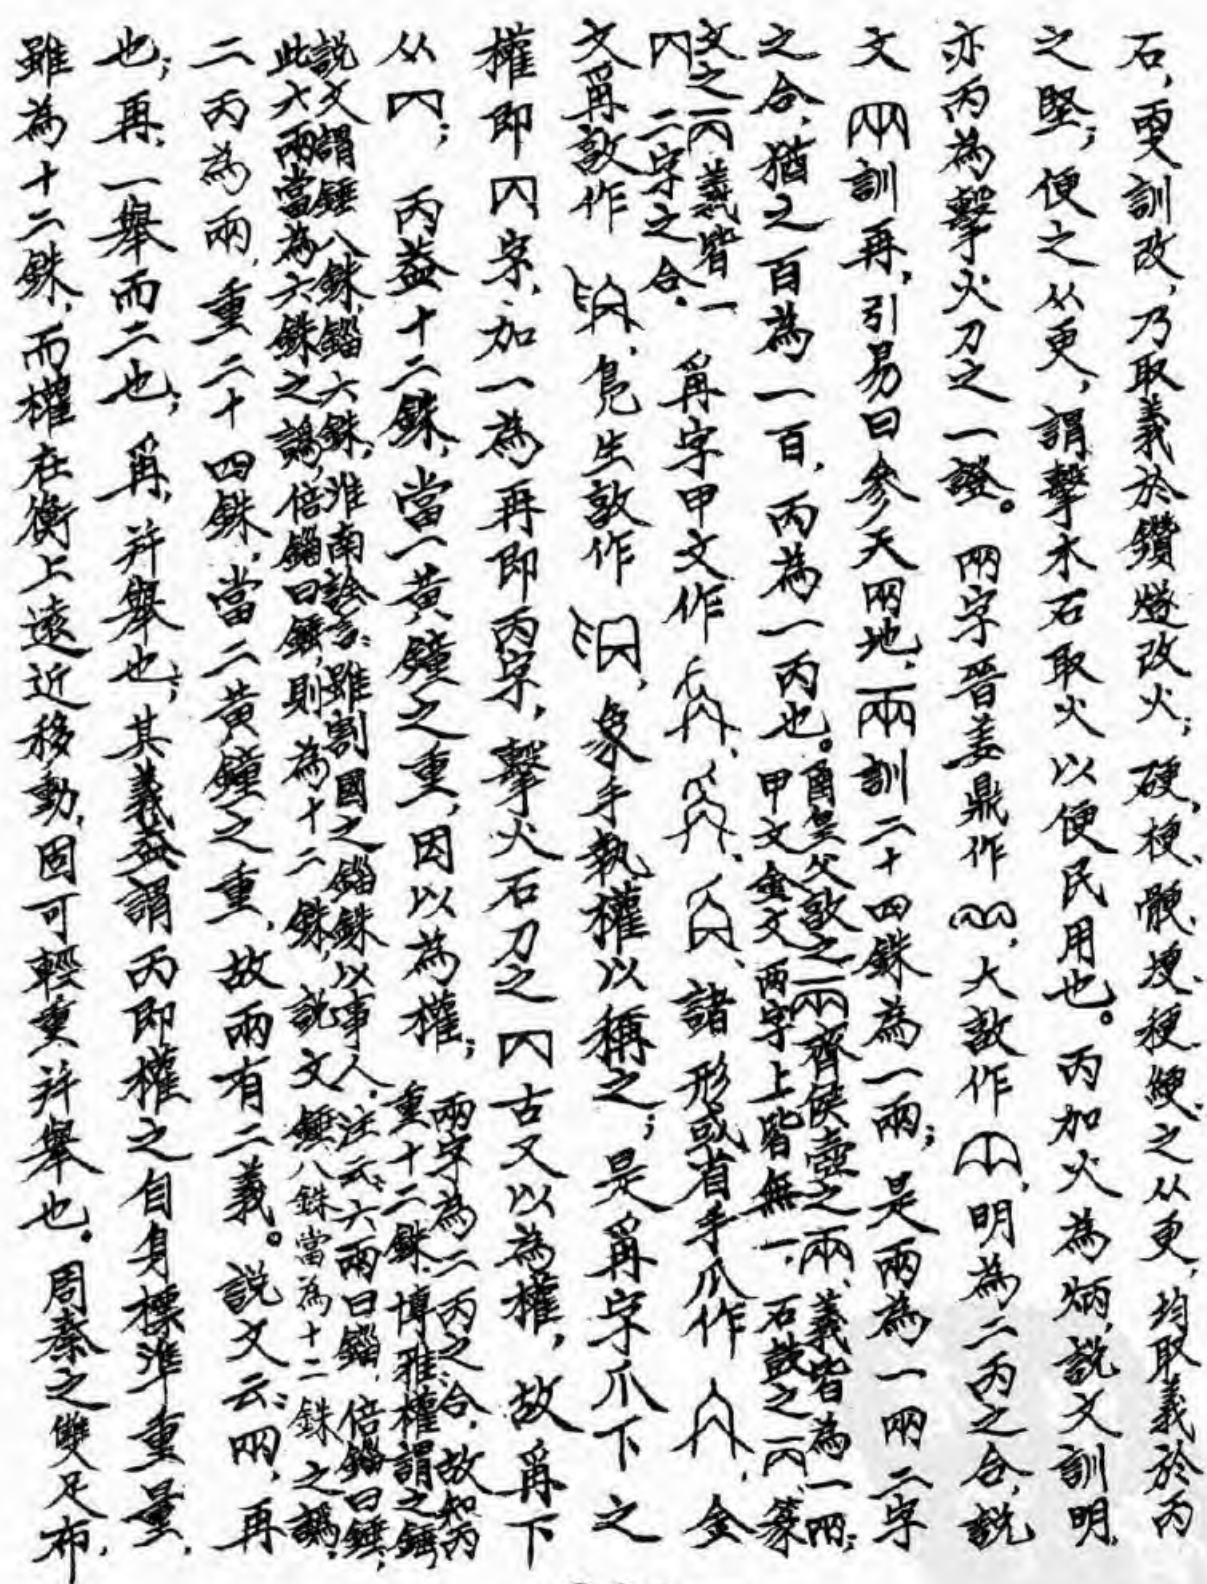 石，㪅訓改，乃取義於鑽燧改火；硬、梗、骾、埂、稉、綆、之从更，均取義於丙
之堅；便之从更，謂擊木石取火以便民用也。丙加火為炳，說文訓明，
亦丙為擊火刀之一證。兩字晉姜鼎作，大敦作，明為二丙之合，說
文㒳訓再，引易曰參天㒳地，兩訓二十四銖為一兩；是兩為一㒳二字
之合，猶之百為一百，丙為一丙也。
函皇父敦之兩齊侯壺之兩，義皆為一㒳；
甲文金文兩字上皆無一，石鼓之丙，篆
文之丙義皆一
二字之合。
爯字甲文作、、、諸形或省手爪作，金
文爯敦作，象手執權以稱之；是爯字爪下之
權即字，加一為再即丙字，擊火石刀之古又以為權，故爯下
从；丙蓋十二銖，當一黃鐘之重，因以為權；
兩字為二丙之合，故知丙
重十二銖，博雅權謂之錘，
說文謂錘八銖，錙六銖，淮南詮言：雖割國之錙銖以事人，注云：六兩曰錙，倍錙曰錘，
此六兩當為六銖之譌，倍錙曰錘，則為十二銖，說文錘八銖當為十二銖之譌，
二丙為兩，重二十四銖，當二黃鐘之重，故兩有二義。說文云：㒳，再
也；再，一舉而二也；爯，并舉也；其義蓋謂丙即權之自身標準重量，
雖為十二銖，而權在衡上遠近移動，固可輕重并舉也。周秦之雙足布，